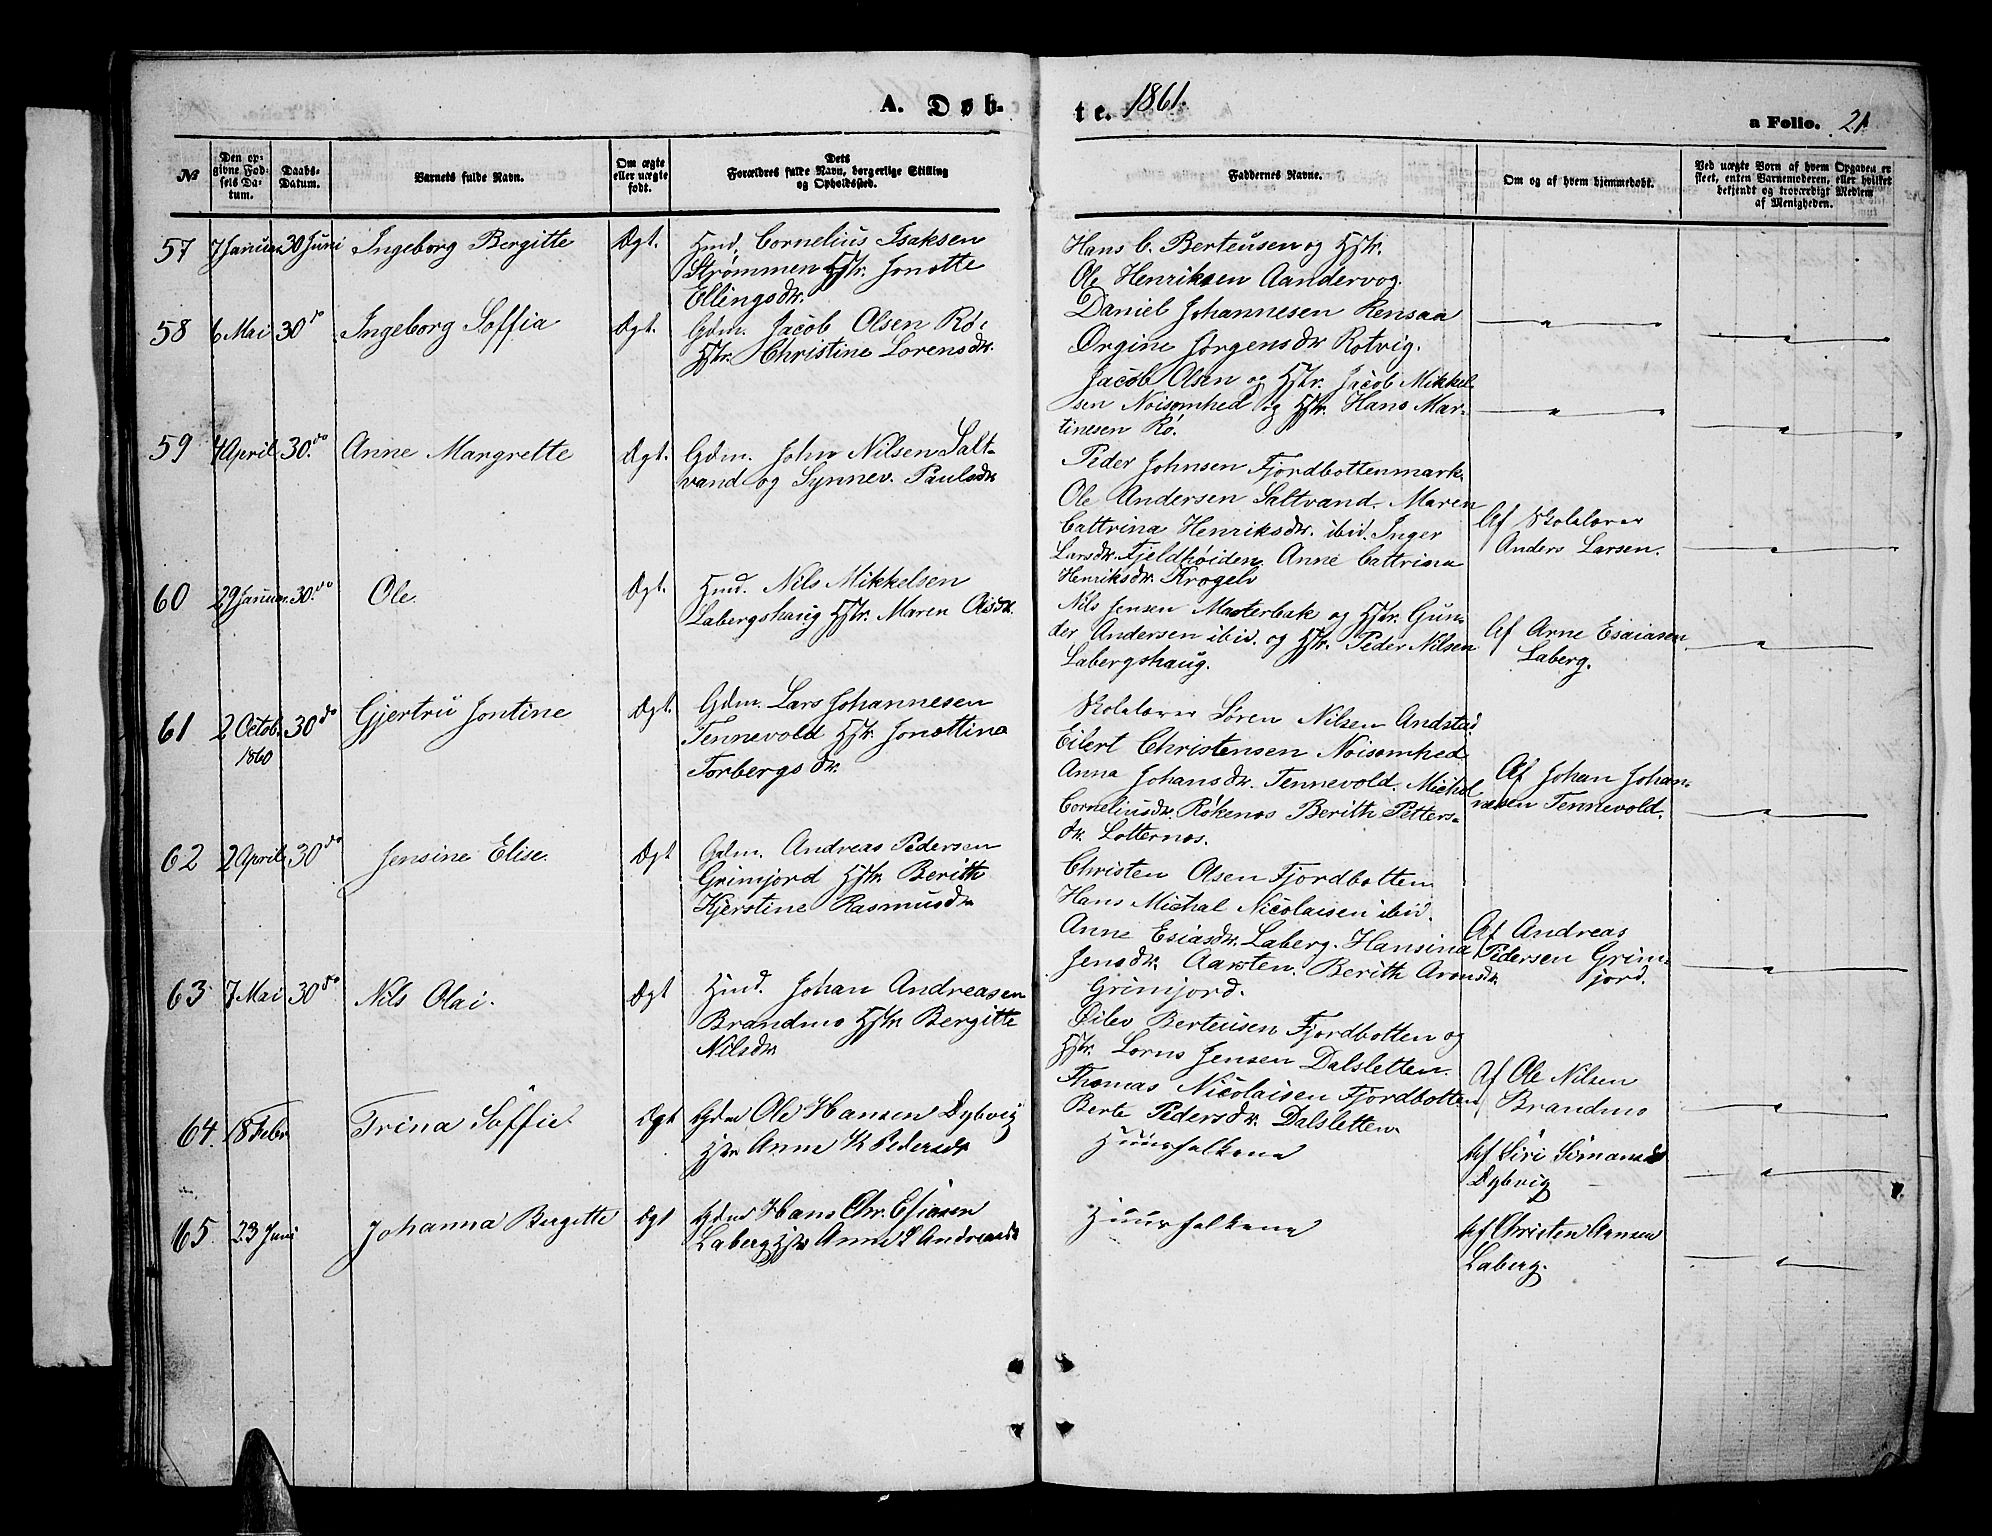 A. Døb-
te. 1861.
a Folio. 21
№
Den op-
givne Fød-
sels Da-
tum.
Daabs-
Datum.
Barnets fulde Navn.
Om ægte
eller uægte
født.
Dets
Forældres fulde Navn, borgerlige Stilling
og Opholdssted.
Faddernes Navne.
Om og af hvem hjemmedøbt.
Ved uægte Børn af hvem Opgaven er
skeet, enten Barnemoderen, eller hvilket
bekjendt og troværdigt Medlem
af Menigheden.
57 7 Januar 30 Juni Ingeborg Bergitte Ægt. Hmd. Cornelius Isaksen
Strømmen Hstr. Jonette
Ellingsdr.
Hans C. Berteusen og Hstr.
Ole Henriksen Aandervog.
Daniel Johannesen Rensaa
Ørgine Jørgensdr Rotvig.
58 6 Mai 30 do Ingeborg Soffia Ægt. Gdm. Jacob Olsen Rø,
Hstr. Christine Lorensdr.
Jacob Olsen og Hstr. Jacob Mikkel-
sen Noisomhed og Hstr. Hans Mar-
tinesen Rø.
59 4 April 30. do Anne Margrette Ægt. Gdm. John Nilsen Salt-
vand og Synnev. Paulsdr
Peder Johnsen Fjordbottenmark.
Ole Andersen Saltvand. Maren
Cattrina Henriksdr. ibid. Inger
Larsdr. Fjeldhøiden Anne Cattrina
Henriksdr. Krogelv
Af Skolelærer
Anders Larsen.
60 29 Januar 30. do Ole. Ægt. Hmd. Nils Mikkelsen
Labergshaug Hstr. Maren Olsdr.
Nils Jensen Masterbak og Hstr. Gun-
der Andersen ibid. og Hstr. Peder Nilsen
Labergshaug.
Af Arne Esaiasen
Laberg.
61 2 Octob. 1860 30 do Gjertru Jontine Ægt. Gdm. Lars Johannesen
Tennevold Hstr. Jonettina
Torbergsdr.
Skolelærer Søren Nilsen Andstad
Eilert Christensen Noisomhed
Anna Johansdr. Tennevold. Michal
Corneliusdr. Røkenes Berith Petters-
dr. Lotternes.
Af Johan Johan-
nesen Tennevold.
62 2 April 30 do Jensine Elise. Ægt Gdm. Andreas Pedersen
Grimjord Hstr Berith
Kjerstine Rasmusdr
Christen Olsen Fjordbotten
Hans Michal Nicolaisen ibid.
Anne Esiasdr. Laberg. Hansina
Jensdr. Aarsten. Berith Aronsdr.
Grimjord.
Af Andreas
Pedersen Grim-
jord.
63 7 Mai 30 do Nils Olai. Ægt Hmd. Johan Andreasen
Brandmo Hstr Bergitte
Nilsdr
Eilev Berteusen Fjordbotten og
Hstr. Lorns Jensen Dalsletten.
Thomas Nicolaisen Fjordbotten
Berte Pedersdr. Dalsletten.
Af Ole Nilsen
Brandmo
64. 18 Febr Trina Soffie. Ægt Gdm Ole Hansen Dybvig
Hstr Anne K Pedersdr
Huusfolkene
Af Siri Simonsd
Dybvig
65. 23 Juni Johanna Bergitte Ægt Gdm Hans Chr. Esiasen
Laberg Hstr Anne Andreasdr
Huusfolkene
Af Christen Hansen
Laberg.